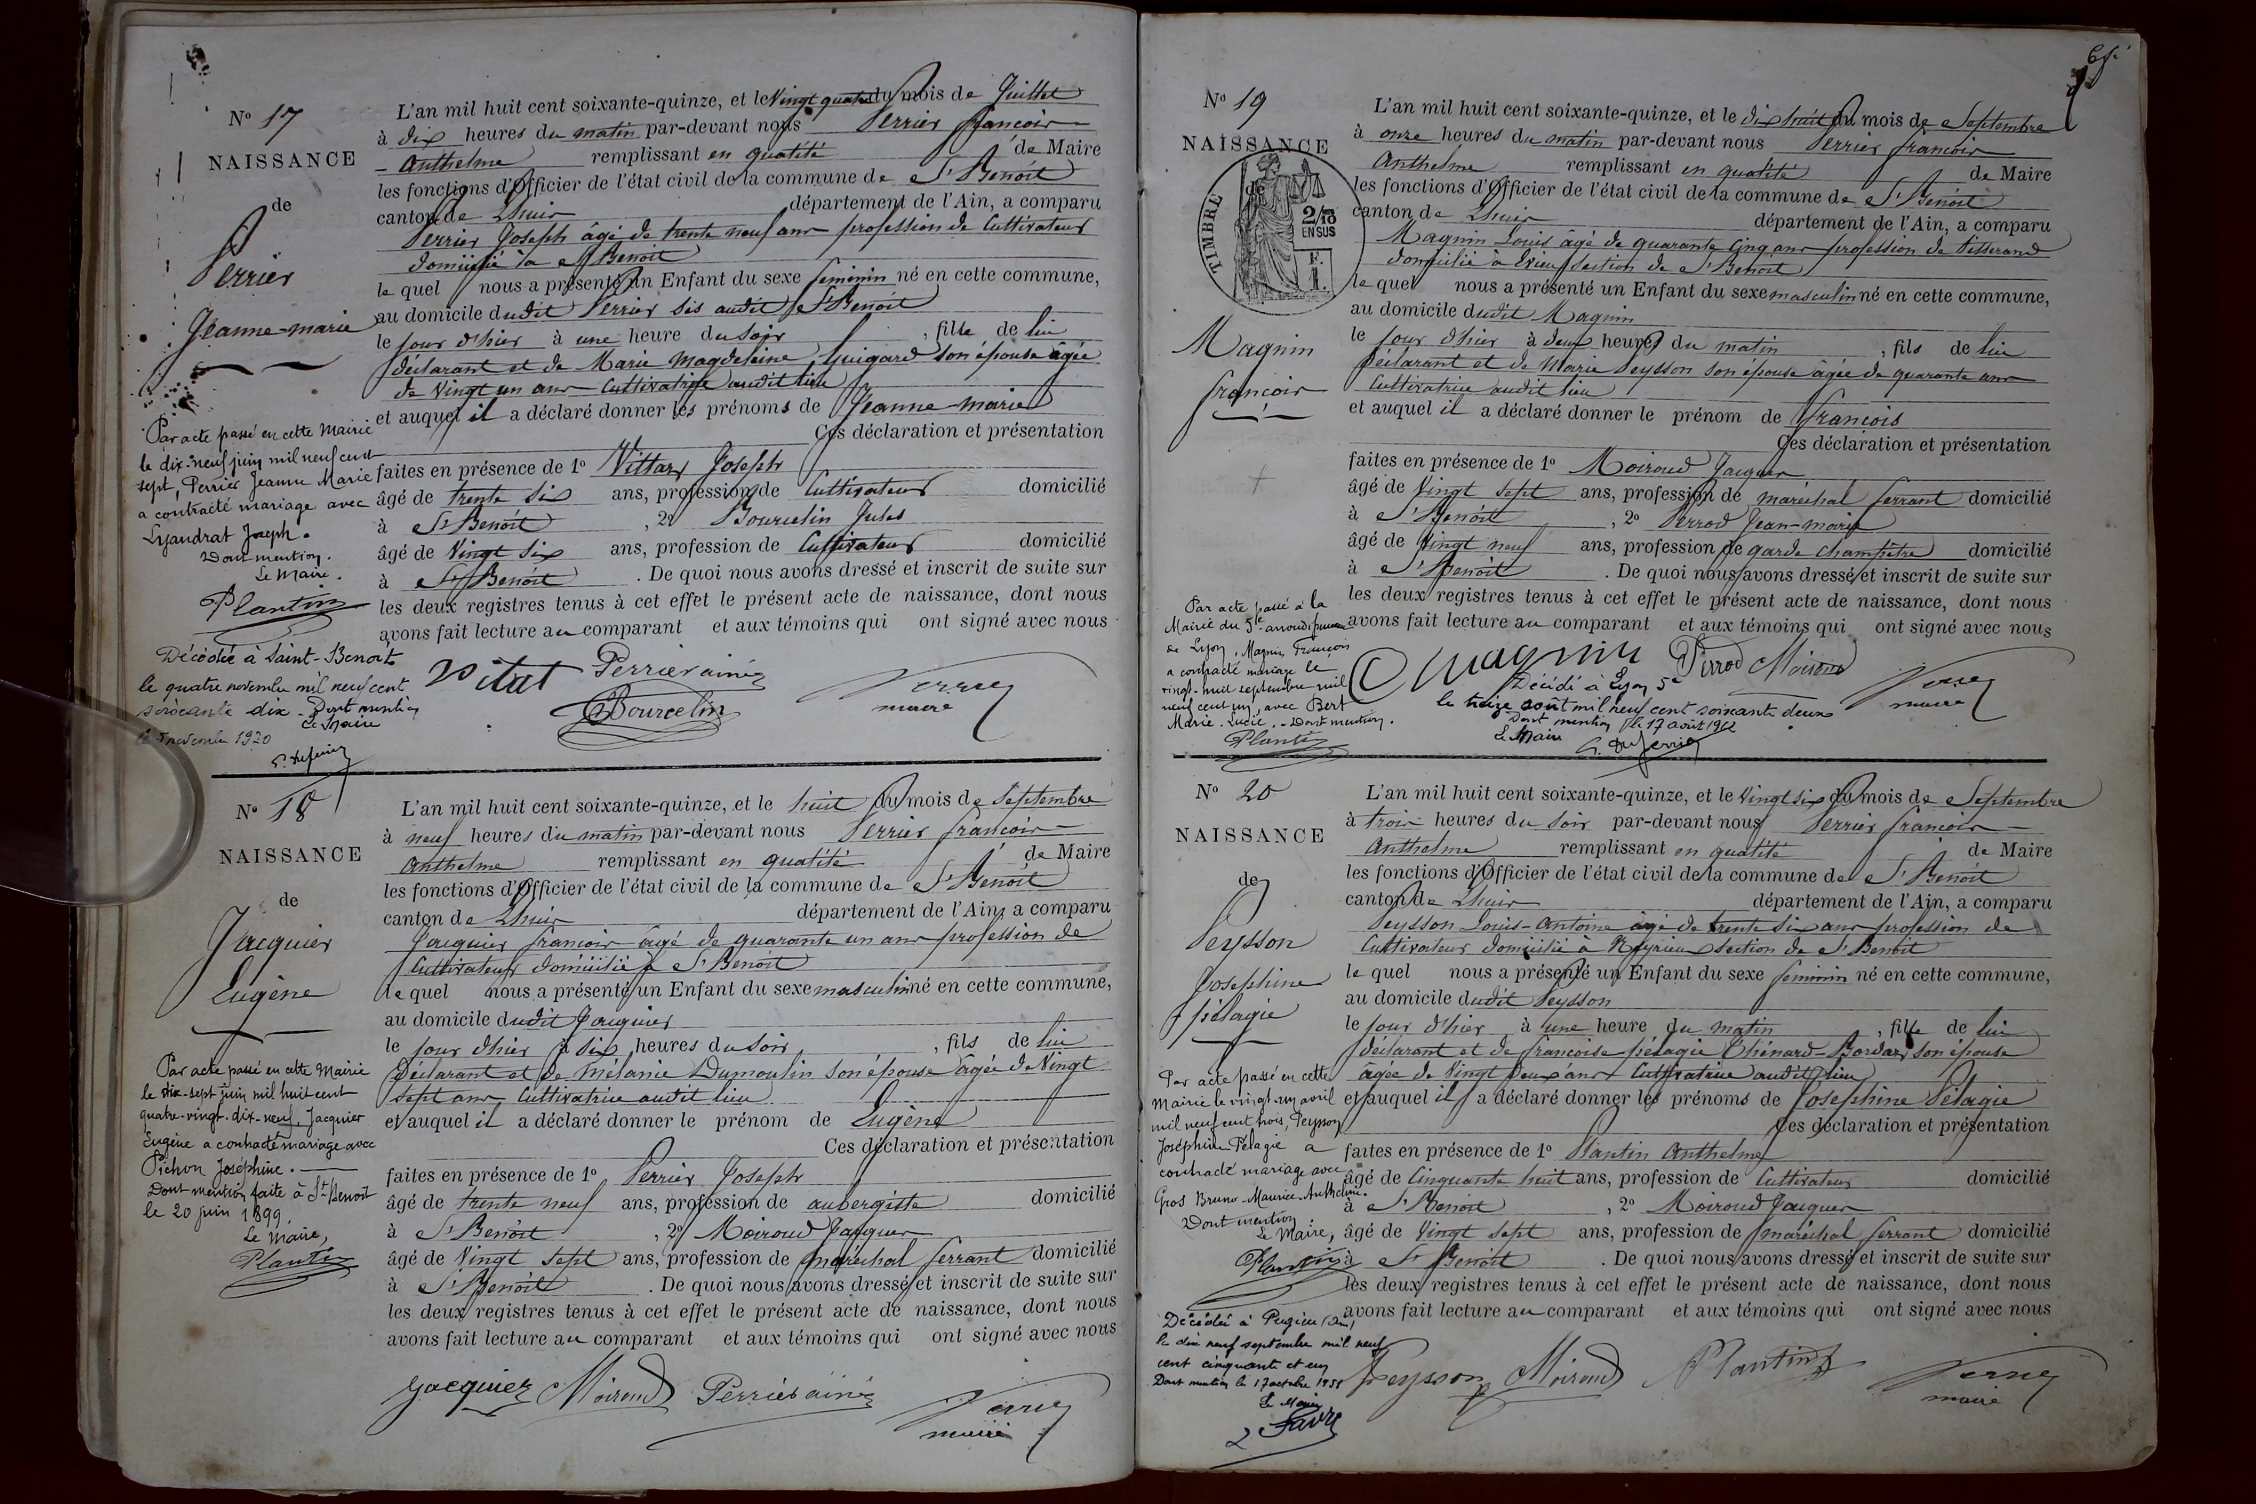 N° 17
NAISSANCE
de
Perrier
Jeanne-marie
Par acte passé en cette Mairie
le dix-neuf juin mil neuf cent
sept, Perrier Jeanne Marie
a contracté mariage avec
Lyaudrat Joseph.
Dont mention.
Le Maire.
Plantin
Décédée à Saint-Benoit
le quatre novembre mil neuf cent
soixante dix - Dont mention
Le Maire
L'an mil huit cent soixante-quinze, et le Vingt quatre du mois de Juillet
à dix heures du matin par-devant nous Perrier françois
Anthelme remplissant en qualité de Maire
les fonctions d'Officier de l'état civil de la commune de St Benoit
canton de Lhuis département de l'Ain, a comparu
Perrier Joseph âgé de trente neuf ans profession de Cultivateur
domicilié à St Benoit
le quel nous a présenté un Enfant du sexe feminin né en cette commune,
au domicile dudit Perrier sis audit St Benoit
le jour d'hier à une heure du soir , fille de lui
déclarant et de Marie Magdeleine Guigard son épouse âgée
de Vingt un ans Cultivatrice audit lieu
et auquel il a déclaré donner les prénoms de Jeanne-marie
Ces déclaration et présentation
faites en présence de 1° Vittaz Joseph
âgé de trente six ans, profession de Cultivateur domicilié
à St Benoit , 2° Bourcelin Jules
âgé de Vingt six ans, profession de Cultivateur domicilié
à St Benoit . De quoi nous avons dressé et inscrit de suite sur
les deux registres tenus à cet effet le présent acte de naissance, dont nous
avons fait lecture au comparant et aux témoins qui ont signé avec nous
Vitat Perrier ainé
Bourcelin
maire
N° 18
NAISSANCE
de
Jacquier
Eugène
Par acte passé en cette Mairie
le dix-sept juin mil huit cent
quatre-vingt-dix-neuf, Jacquier
Eugène a contracté mariage avec
Pichon Joséphine.
Dont mention faite à St Benoit
le 20 juin 1899
Le Maire,
Plantin
L'an mil huit cent soixante-quinze, et le huit du mois de Septembre
à neuf heures du matin par-devant nous Perrier françois
Anthelme remplissant en qualité de Maire
les fonctions d'Officier de l'état civil de la commune de St Benoit
canton de Lhuis département de l'Ain, a comparu
Jacquier françois âgé de quarante un ans profession de
Cultivateur domicilié à St Benoit
le quel nous a présenté un Enfant du sexe masculin né en cette commune,
au domicile dudit Jacquier
le jour d'hier à six heures du soir , fils de lui
déclarant et de Mélanie Dumoulin son épouse âgée de Vingt
sept ans Cultivatrice audit lieu
et auquel il a déclaré donner le prénom de Eugène
Ces déclaration et présentation
faites en présence de 1° Perrier Joseph
âgé de trente neuf ans, profession de aubergiste domicilié
à St Benoit , 2° Moiroud Jacques
âgé de Vingt sept ans, profession de maréchal ferrant domicilié
à St Benoit . De quoi nous avons dressé et inscrit de suite sur
les deux registres tenus à cet effet le présent acte de naissance, dont nous
avons fait lecture au comparant et aux témoins qui ont signé avec nous
Jacquier Moiroud Perrier ainé
maire
N° 19
NAISSANCE
TIMBRE
2/10
EN SUS
F.
1.
Magnin
françois
Par acte passé à la
Mairie du 5e arrondissement
de Lyon, Magnin François
a contracté mariage le
vingt-huit septembre mil
neuf cent un, avec Bert
Marie-Lucie. - Dont mention.
Plantin
L'an mil huit cent soixante-quinze, et le dix huit du mois de Septembre
à onze heures du matin par-devant nous Perrier françois
Anthelme remplissant en qualité de Maire
les fonctions d'Officier de l'état civil de la commune de St Benoit
canton de Lhuis département de l'Ain, a comparu
Magnin Louis âgé de quarante cinq ans profession de tisserand
domicilié à Evieu section de St Benoit
le quel nous a présenté un Enfant du sexe masculin né en cette commune,
au domicile dudit Magnin
le jour d'hier à deux heures du matin , fils de lui
déclarant et de Marie Peysson son épouse âgée de quarante ans
Cultivatrice audit lieu
et auquel il a déclaré donner le prénom de françois
Ces déclaration et présentation
faites en présence de 1° Moiroud Jacques
âgé de Vingt sept ans, profession de maréchal ferrant domicilié
à St Benoit , 2° Perrod Jean-marie
âgé de Vingt neuf ans, profession de garde champêtre domicilié
à St Benoit . De quoi nous avons dressé et inscrit de suite sur
les deux registres tenus à cet effet le présent acte de naissance, dont nous
avons fait lecture au comparant et aux témoins qui ont signé avec nous
Magnin Perrod Moiroud
maire
Décédé à Lyon 5e
le treize août mil neuf cent soixante deux
Dont mention le 17 août 1962
Le Maire
N° 20
NAISSANCE
de
Peysson
Josephine
pélagie
Par acte passé en cette
Mairie le vingt-un avril
mil neuf cent trois, Peysson
Joséphine-Pélagie a
contracté mariage avec
Gros Bruno-Maurice-Anthelme.
Dont mention.
Le Maire,
Plantin
Décédée à Pugieu (Ain)
le dix neuf septembre mil neuf
cent cinquante et un
Le Maire
Favre
L'an mil huit cent soixante-quinze, et le Vingt six du mois de Septembre
à trois heures du soir par-devant nous Perrier françois
Anthelme remplissant en qualité de Maire
les fonctions d'Officier de l'état civil de la commune de St Benoit
canton de Lhuis département de l'Ain, a comparu
Peysson Louis-Antoine âgé de trente six ans profession de
Cultivateur domicilié à section de St Benoit
le quel nous a présenté un Enfant du sexe feminin né en cette commune,
au domicile dudit Peysson
le jour d'hier à une heure du matin , fille de lui
déclarant et de françoise pélagie Thénard-Bordaz son épouse
âgée de Vingt deux ans Cultivatrice audit lieu
et auquel il a déclaré donner les prénoms de Josephine Pélagie
Ces déclaration et présentation
faites en présence de 1° Plantin Anthelme
âgé de Cinquante huit ans, profession de Cultivateur domicilié
à St Benoit , 2° Moiroud Jacques
âgé de Vingt sept ans, profession de maréchal ferrant domicilié
à St Benoit . De quoi nous avons dressé et inscrit de suite sur
les deux registres tenus à cet effet le présent acte de naissance, dont nous
avons fait lecture au comparant et aux témoins qui ont signé avec nous
Peysson Moiroud Plantin
maire